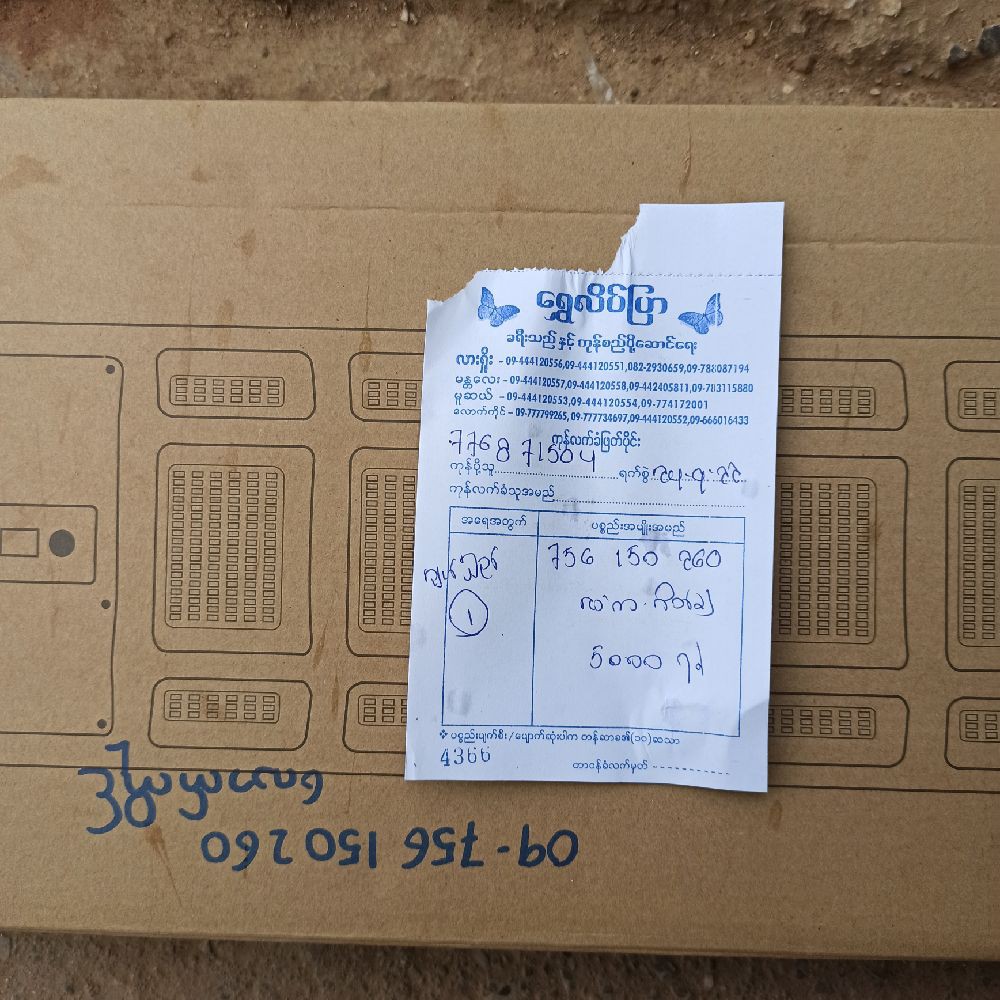 ရွှေလိပ်ပြာ
ခရီးသည် နှင့် ကုန်စည်ပို့ဆောင်ရေး
လားရှိုး - 09-444120556,09-444120551,082-2930659,09-788087194
မန္တလေး - 09-444120557,09-444120558,09-442405811,09-783115880
မူဆယ် - 09-444120553,09-444120554,09-774172001
လောက်ကိုင် - 09-777799265,09-777734697,09-444120552,09-666016433
ကုန်လက်ခံဖြတ်ပိုင်း
776871504
ကုန်ပို့သူ ရက်စွဲ ၂၄.၇.၂၄
ကုန်လက်ခံသူအမည်
အရေအတွက် ပစ္စည်းအမျိုးအမည်
756 150 260
၁
5000
❖ ပစ္စည်းပျက်စီး/ပျောက်ဆုံးပါက တန်ဆာခ၏(၁၀)ဆသာ
4366
တာဝန်ခံလက်မှတ်
09-756 150 260